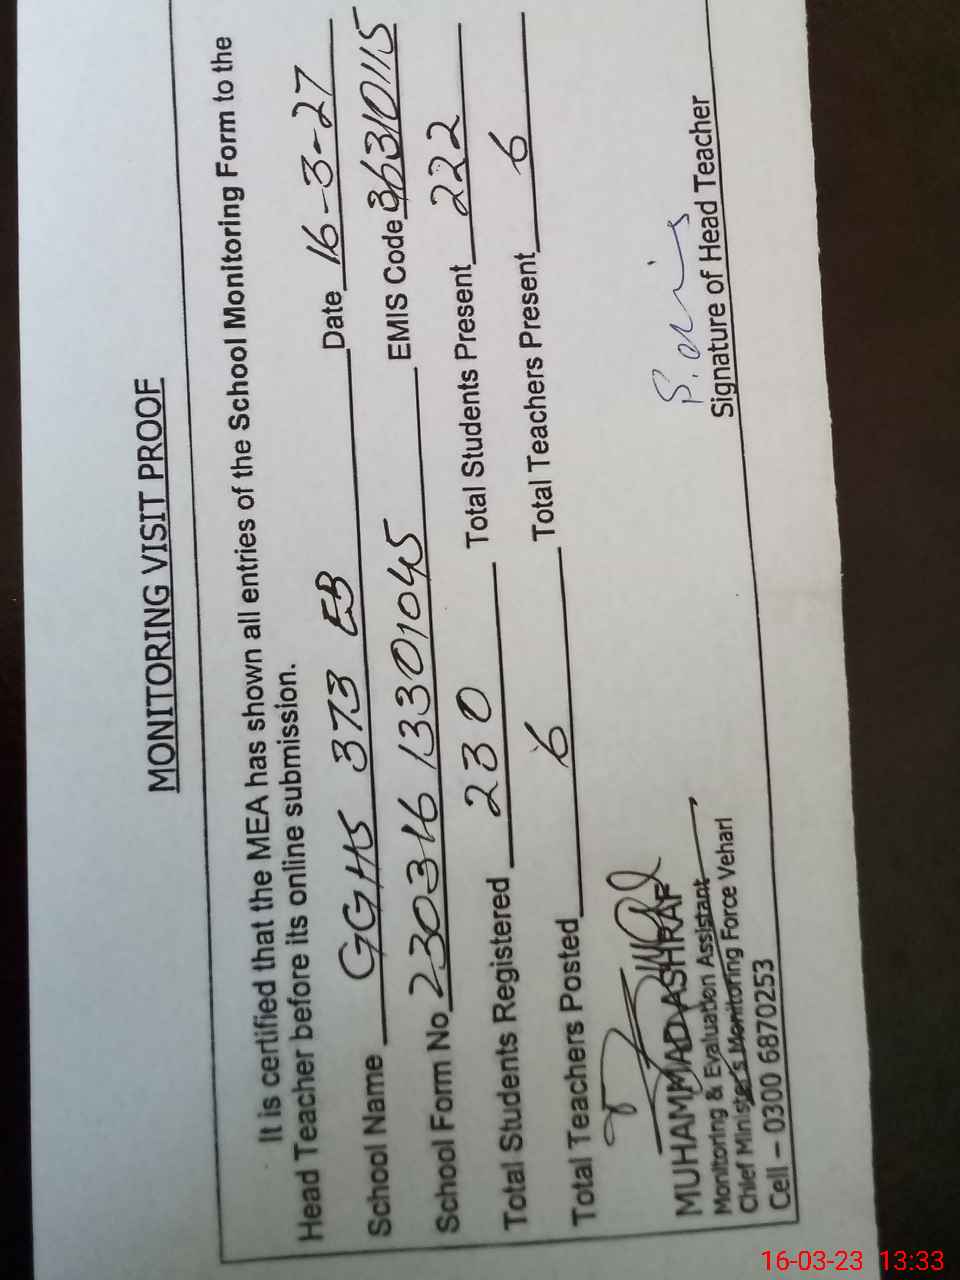 MONITORING VISIT PROOF
It is certified that the MEA has shown all entries of the School Monitoring Form to the
Head Teacher before its online submission.
School Name GGHS 373 EB Date 16-3-27
School Form No 230316 13301045 EMIS Code 36310115
Total Students Registered 230 Total Students Present 222
Total Teachers Posted 6 Total Teachers Present 6
MUHAMMAD ASHRAF
Monitoring & Evaluation Assistant
Chief Minister's Monitoring Force Vehari
Cell – 0300 6870253
Signature of Head Teacher
16-03-23 13:33